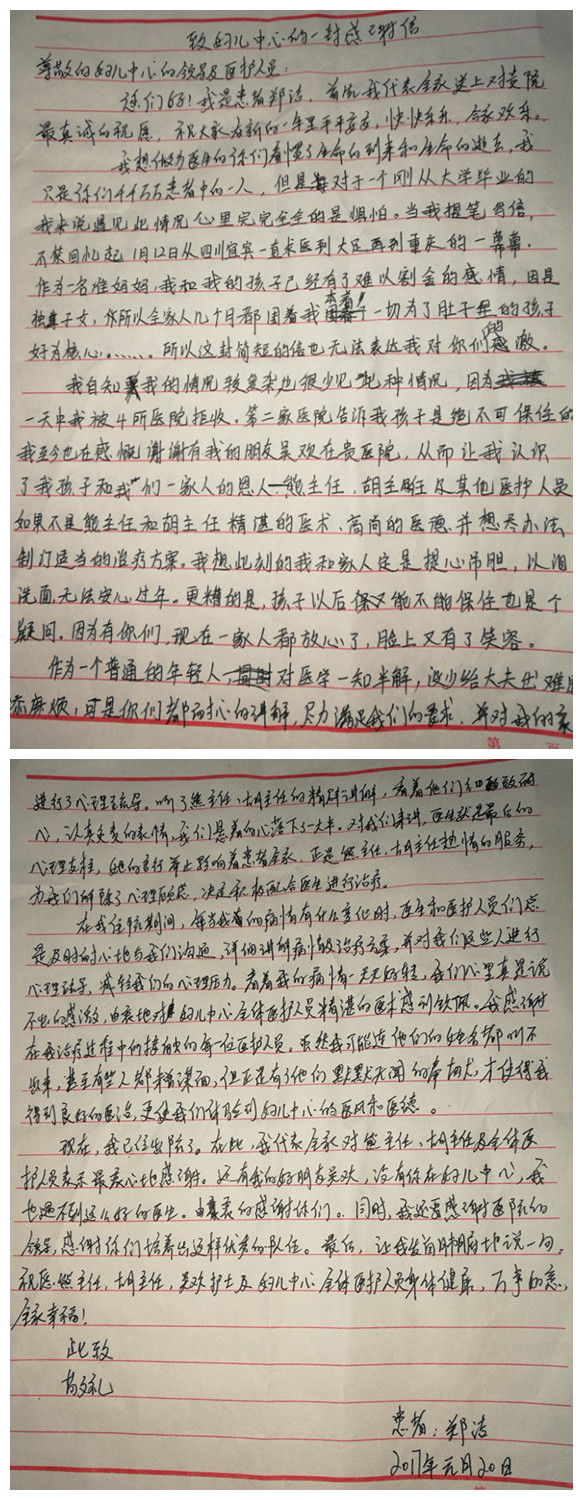 致妇儿中心的一封感谢信
尊敬的妇儿中心的领导及医护人员:
您们好!我是患者郑洁,首先我代表全家送上对贵院
最真诚的祝愿,祝大家在新的一年里平平安安,快快乐乐,合家欢乐。
我想做为医生的你们看惯了生命的到来和生命的逝去,我
只是你们千千万万患者中的一人,但是对于一个刚从大学毕业的
我来说遇见此情况心里完完全全的是惧怕。当我提笔写信,
不禁回忆起1月12日从四川宜宾一直求医到大足再到重庆的一幕幕.
作为一名准妈妈,我和我的孩子已经有了难以割舍的感情,因是
独身子女,所以全家人几个月都围着我本着!一切为了肚子里的孩子
好为核心……所以这封简短的信也无法表达我对你们的感激。
我自知我的情况较复杂,也很少见此种情况,因为
一天中我被4所医院拒收。第二家医院告诉我孩子是绝不可保住的
我至今也在感慨谢谢有我的朋友吴欢在贵医院,从而让我认识
了我孩子和我们一家人的恩人—熊主任,胡主任及其他医护人员
如果不是熊主任和胡主任精湛的医术、高尚的医德并想尽办法,
制订适当的治疗方案。我想此刻的我和家人定是提心吊胆,以泪
洗面,无法安心过年。更糟的是,孩子以后又能不能保住也是个
疑问。因为有你们,现在一家人都放心了,脸上又有了笑容。
作为一个普通的年轻人,对医学一知半解,没少给大夫出难题
添麻烦,可是你们都耐心的讲解,尽力满足我们的要求,并对我的家
进行了心理疏导。听了熊主任、胡主任的精辟讲解,看着他们细致耐
心,认真负责的表情,我们悬着的心落下了一大半。对我们来讲,医生就是最后的
心理支柱,她的言行举止影响着患者全家,正是熊主任,胡主任热情的服务,
为我们解除了心理顾虑,决定积极配合医生进行治疗。
在我住院期间,每当我的病情有什么变化时,医生和医护人员们总
是及时耐心地与我们沟通,详细讲解病情及治疗方案,并对我们这些人进行
心理疏导,减轻我们的心理压力。看着我的病情一天天好转,我们心里真是说
不出的感激,由衷地对妇儿中心全体医护人员精湛的医术感到钦佩。我感谢
在我治疗过程中所接触的每一位医护人员。虽然我可能连他们的姓名都叫不
出来,甚至有些人都未曾谋面,但正是有了他们默默无闻的奉献,才使得我
得到良好的医治,更使我们体验到妇儿中心的医风和医德。
现在,我已住出院了。在此,我代表全家对熊主任、胡主任及全体医
护人员表示最衷心地感谢。还有我的好朋友吴欢,没有你在妇儿中心,我
也遇不到这么好的医生。由衷的感谢你们。同时,我还要感谢医院的
领导,感谢你们培养出这样优秀的队伍。最后,让我发自肺腑地说一句。
祝愿熊主任,胡主任,吴欢护士及妇儿中心全体医护人员身体健康,万事如意,
全家幸福!
此致
敬礼
患者:郑洁
2017年元月20日